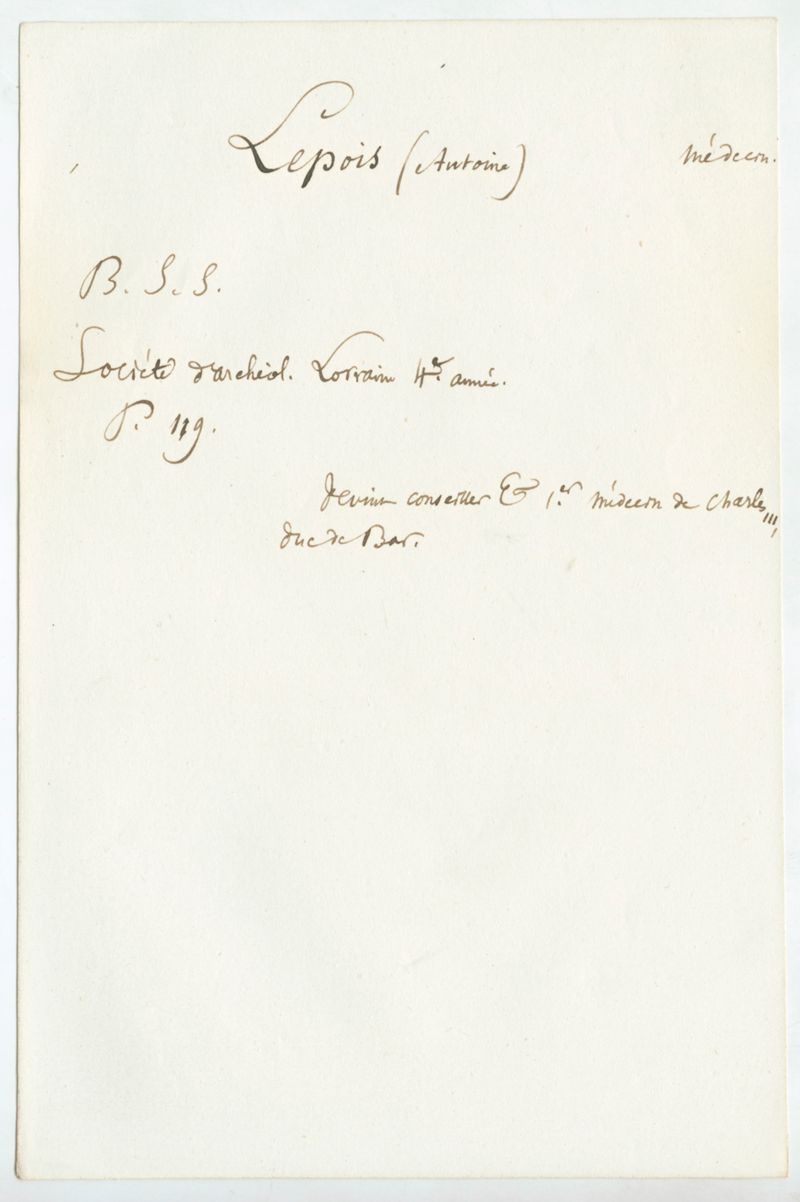 Lepois (Antoine) Médecin.
B. S. S.
Société d'archéol. Lorraine 4e. année.
P. 119.
Devint conseiller & 1.er Médecin de Charles III,
duc de Bar.